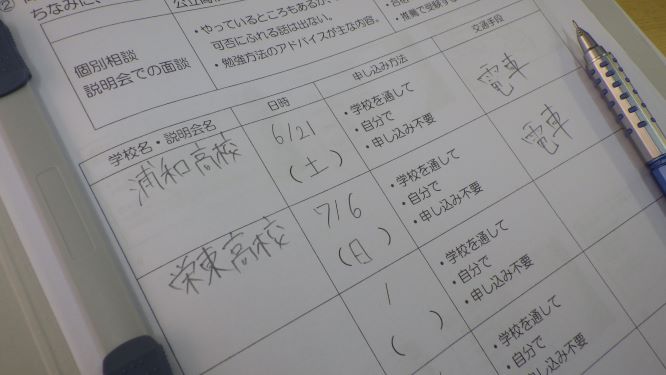 ②
ちなみに、
公立高
個別相談
説明会での面談
・やっているところもあるが、
可否にふれる話は出ない。
・勉強方法のアドバイスが主な内容。
・推薦で受験す
学校名・説明会名
日時
申し込み方法
交通手段
浦和高校
6/21
(土)
・学校を通して
・自分で
・申し込み不要
電車
栄東高校
7/6
(日)
・学校を通して
・自分で
・申し込み不要
電車
/
( )
・学校を通して
・自分で
・申し込み不要
・学校を通して
・自分で
・申し込み不要